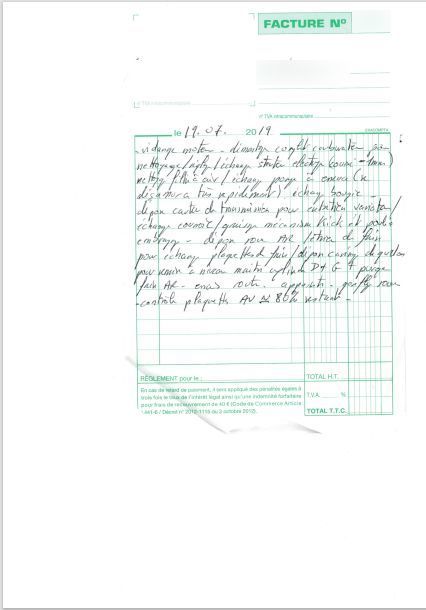 FACTURE N°
n° TVA intracommunautaire
n° TVA intracommunautaire
le 19.07. 2019
EXACOMPTA
- vidange moteur - démontage complet carburateur pour
nettoyage / / échange starter électrique
nettoy filtre à air / échang pompe à essence (se
désamorce très rapidement) échang bougie -
dépose carter de transmission pour entretien variateur /
échange courroie / graissage mécanisme Kick et
embrayage - dépose roue AR / étrier de frein
pour échang plaquettes de frein / dépose
pour remise à niveau maitre cylindre D + G + purge
frein AR - essais route - appoints - gonflage roues
- contrôle plaquettes AV 80% restant -
RÈGLEMENT pour le :
En cas de retard de paiement, il sera appliqué des pénalités égales à
trois fois le taux de l'intérêt légal ainsi qu'une indemnité forfaitaire
pour frais de recouvrement de 40 € (Code de Commerce Article
L441-6 / Décret n° 2012-1115 du 2 octobre 2012).
TOTAL H.T.
T.V.A. %
TOTAL T.T.C.